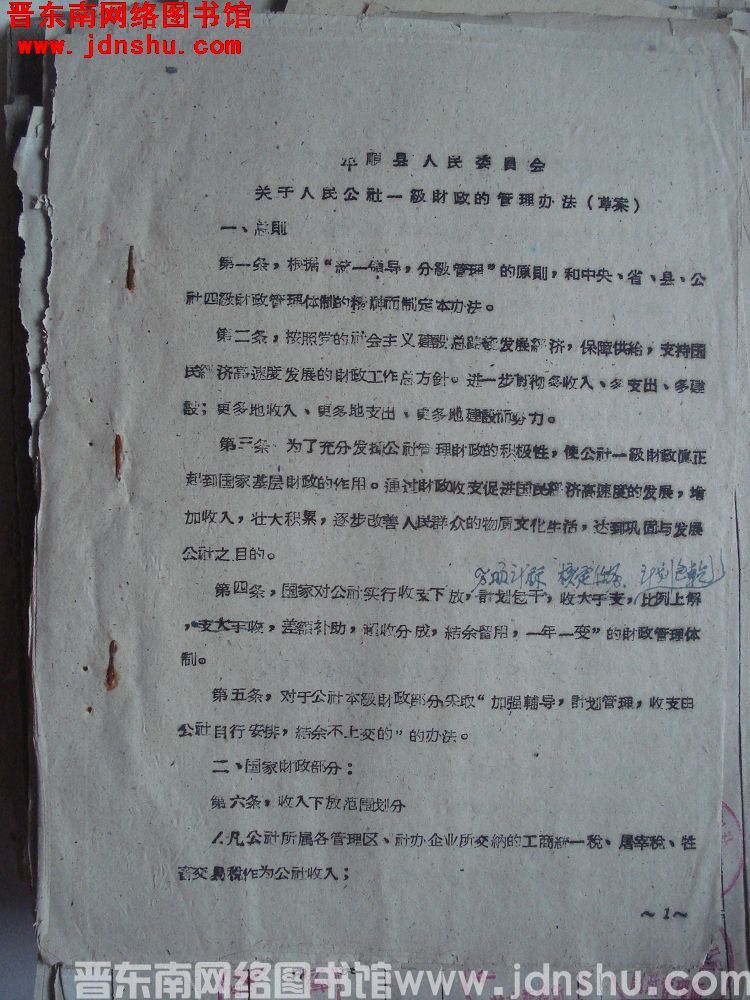 晋东南网络图书馆
www.jdnshu.com
平順县人民委員会
关于人民公社一級財政的管理办法（草案）
一、总則
第一条，根据“統一領导，分級管理”的原則，和中央、省、县、公
社四級財政管理体制的精神而制定本办法。
第二条，按照党的社会主义建設总路綫发展經济，保障供給，支持国
民經济高速度发展的財政工作总方針。进一步貫彻多收入、多支出、多建
設；更多地收入、更多地支出、更多地建設而努力。
第三条，为了充分发揮公社管理財政的积极性，使公社一級財政眞正
起到国家基层財政的作用。通过財政收支促进国民經济高速度的发展，增
加收入，壮大积累，逐步改善人民群众的物质文化生活，达到巩固与发展
公社之目的。
第四条，国家对公社实行收支下放，計划包干，收大于支，比例上解
，支大于收，差額补助，超收分成，結余留用，一年一变”的財政管理体
制。
第五条，对于公社本級財政部分采取“加强輔导，計划管理，收支由
公社自行安排，結余不上交的”的办法。
二、国家財政部分：
第六条，收入下放范围划分
1.凡公社所属各管理区、社办企业所交納的工商統一税、屠宰税、牲
畜交易税作为公社收入；
～1～
晋东南网络图书馆 www.jdnshu.com